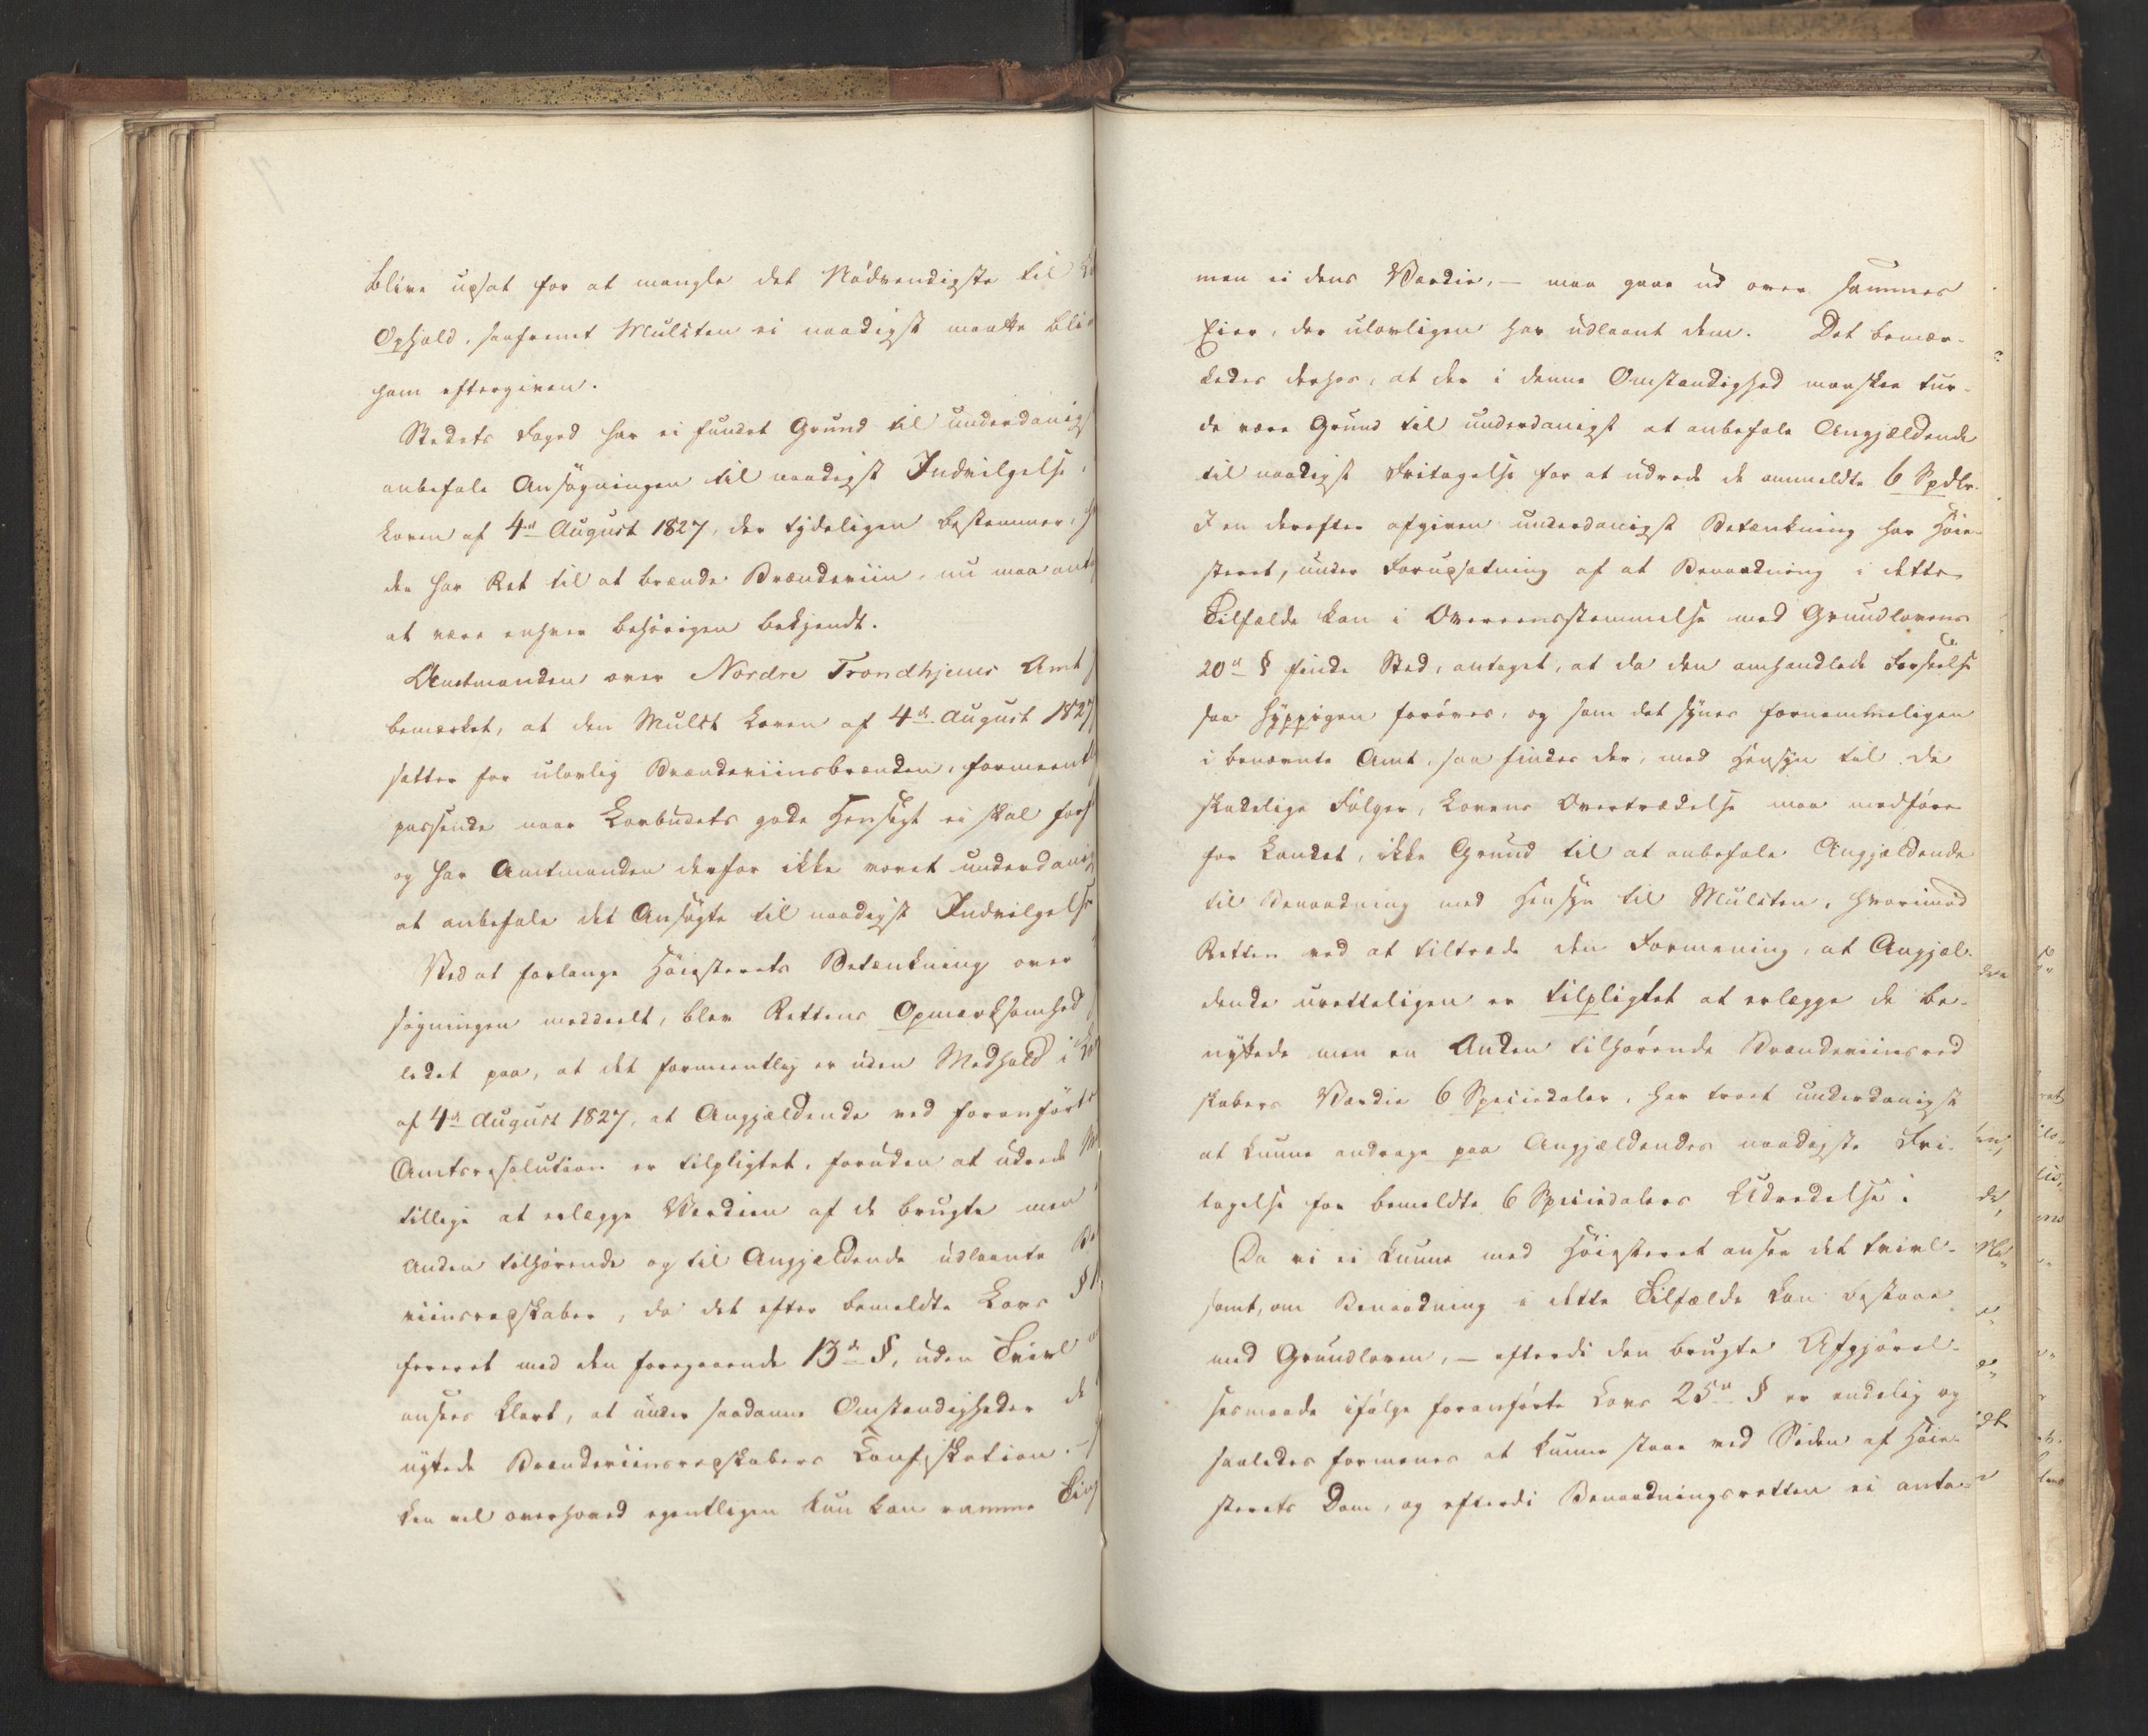 blive udsat for at mangle det Nödvendigste til
Ophold, saafremt Mulkten ei naadigst maatte bli
ham eftergiven.
Stedets Foged har ei fundet Grund til underdanigst
anbefale Ansögningen til naadigst Indvilgelse,
Loven af 4de August 1827, der tydeligen bestemmer,
der har Ret til at brænde Brændeviin, nu maa ant
at være enhver behörigen bekjendt.
Amtmanden over Nordre Trondhjems Amt
bemærket, at den Mulkt Loven af 4de August 1827
sætter for ulovlig Brændeviinsbrænden, formeent
passende naar Lovbudets gode Hensigt ei skal for
og har Amtmanden derfor ikke vovet underdanig
at anbefale det Ansögte til naadigst Indvilgelse
Ved at forlange Höiesterets Betænkning over
sögningen meddeelt, blev Rettens Opmærksomhed
ledet paa, at det formeentlig er uden Medhold i
af 4de August 1827, at Angjældende ved foranförte
Amtsresolution er tilpligtet, foruden at udrede
tillige at erlægge Værdien af de brugte men
Anden tilhörende og til Angjældende udlaante
viinsredskaber, da det efter bemeldte Lovs §
sereret med den foregaaende 13de §, uden Tvivl
ansees klart, at under saadanne Omstændigheder de
nyttede Brændeviinsredskabers Confiskation. –
ken vel overhoved egentligen kun kan ramme
men ei dens Værdie, – maa gaae ud over sammes
Eier, der ulovligen har udlaant dem. Det bemær-
kedes derhos, at der i denne Omstændighed maaskee tur-
de være Grund til underdanigst at anbefale Angjældende
til naadigst Fritagelse for at udrede de anmeldte 6 Spdlr.
I en derefter afgiven underdanigst Betænkning har Höie-
steret, under Forudsætning af at Benaadning i dette
Tilfælde kan i Overeensstemmelse med Grundlovens
20de § finde Sted, antaget, at da den omhandlede Forseelse
saa hyppigen foröves, og som det synes fornemmeligen
i benævnte Amt, saa findes der, med Hensyn til de
skadelige Fölger, Lovens Overtrædelse maa medföre
for Landet, ikke Grund til at anbefale Angjældende
til Benaadning med Hensyn til Mulkten, hvorimod
Retten ved at tiltræde den Formening, at Angjæl-
dende uretteligen er tilpligtet at erlægge de be-
nyttede men en Anden tilhörende Brændeviinsred
skabers Værdie 6 Speciedaler, har troet underdanigst
at kunne andrage paa Angjældendes naadigste Fri-
tagelse for bemeldte 6 Speciedalers Udredelse.
Da vi ei kunne med Höiesteret ansee det tvivl-
somt, om Benaadning i dette Tilfælde kan bestaae
med Grundloven, – efterdi den brugte Afgjörel-
sesmaade ifölge foranförte Lovs 25de § er endelig og
saaledes formenes at kunne staae ved Siden af Höie-
sterets Dom, og efterdi Benaadningsretten ei anta-